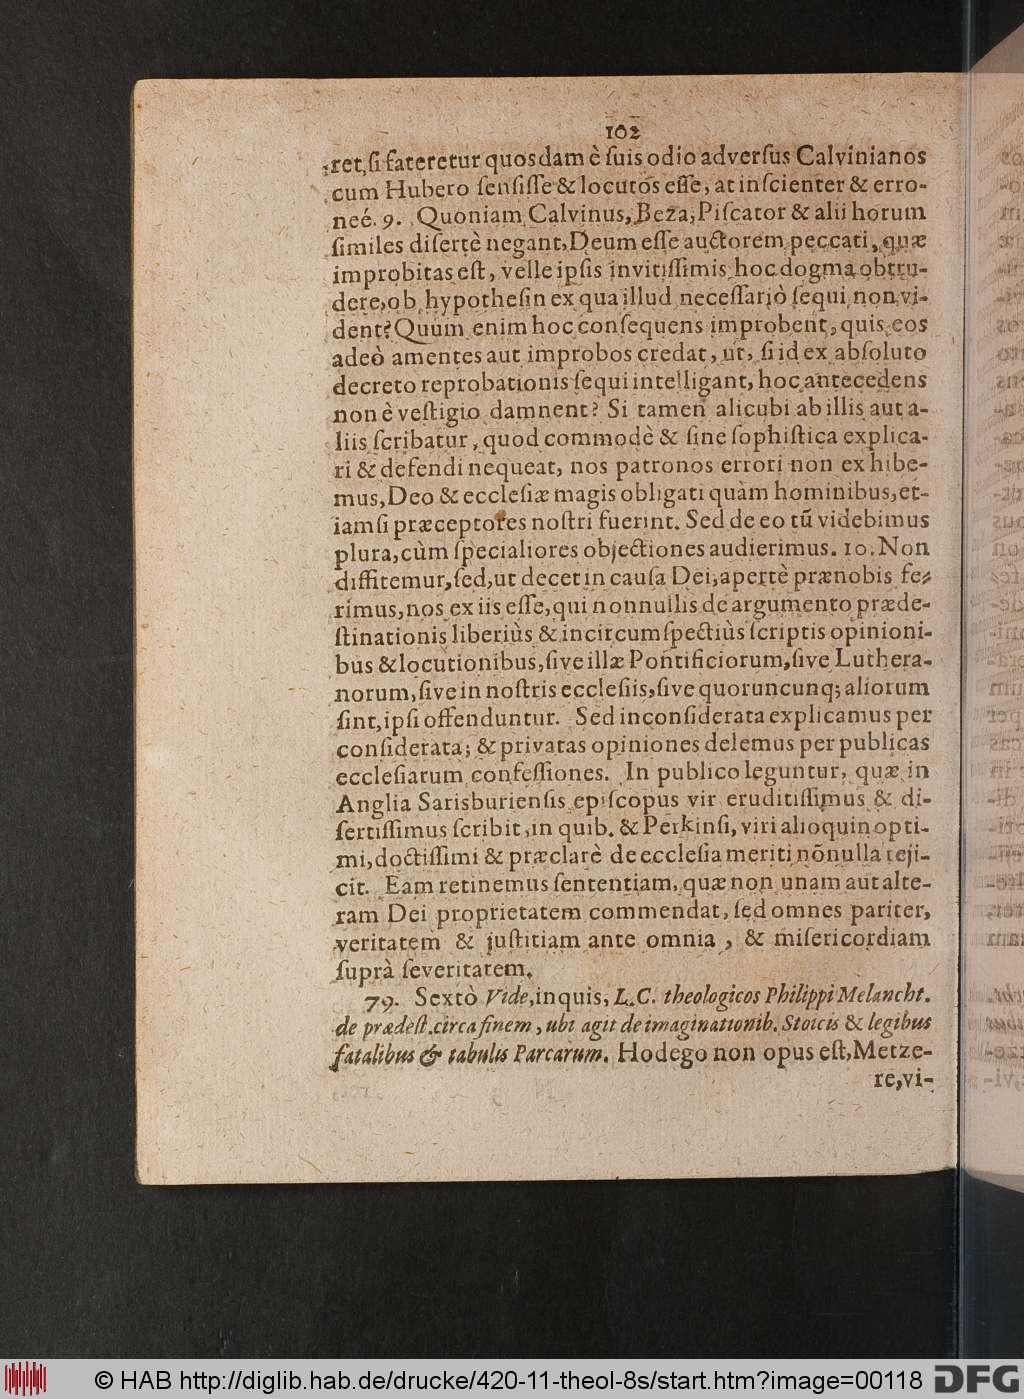 102
ret, ſi fateretur quosdam è ſuis odio adverſus Calvinianos
cum Hubero ſenſiſſe & locutos eſſe, at inſcienter & erro-
neé. 9. Quoniam Calvinus, Beza, Piſcator & alii horum
ſimiles diſertè negant, Deum eſſe auctorem peccati, quæ
improbitas eſt, velle ipſis invitiſſimis hoc dogma obtru-
dere, ob hypotheſin ex qua illud neceſſariò ſequi non vi-
dent? Quùm enim hoc conſequens improbent, quis eos
adeò amentes aut improbos credat, ut, ſi id ex abſoluto
decreto reprobationis ſequi intelligant, hoc antecedens
non è veſtigio damnent? Si tamen alicubi ab illis aut a-
liis ſcribatur, quod commodè & ſine ſophiſtica explica-
ri & defendi nequeat, nos patronos errori non exhibe-
mus, Deo & eccleſiæ magis obligati quàm hominibus, et-
iamſi præceptores noſtri fuerint. Sed de eo tũ videbimus
plura, cùm ſpecialiores objectiones audierimus. 10. Non
diffitemur, ſed, ut decet in cauſa Dei, apertè præ nobis fe-
rimus, nos ex iis eſſe, qui nonnullis de argumento præde-
ſtinationis liberiùs & incircumſpectiùs ſcriptis opinioni-
bus & locutionibus, ſive illæ Pontificiorum, ſive Luthera-
norum, ſive in noſtris eccleſiis, ſive quoruncunq; aliorum
ſint, ipſi offenduntur. Sed inconſiderata explicamus per
conſiderata; & privatas opiniones delemus per publicas
eccleſiarum confeſſiones. In publico leguntur, quæ in
Anglia Sarisburienſis epiſcopus vir eruditiſſimus & di-
ſertiſſimus ſcribit, in quib. & Perkinſi, viri alioquin opti-
mi, doctiſſimi & præclarè de eccleſia meriti nõnulla reji-
cit. Eam retinemus ſententiam, quæ non unam aut alte-
ram Dei proprietatem commendat, ſed omnes pariter,
veritatem & juſtitiam ante omnia, & miſericordiam
ſuprà ſeveritatem.
79. Sextò Vide, inquis, L.C. theologicos Philippi Melancht.
de prædeſt. circa finem, ubi agit de imaginationib. Stoicis & legibus
fatalibus & tabulis Parcarum. Hodego non opus eſt, Metze-
re, vi-
© HAB http://diglib.hab.de/drucke/420-11-theol-8s/start.htm?image=00118
DFG